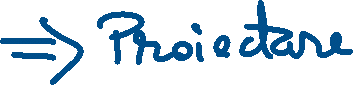 ⇒ Proiectare